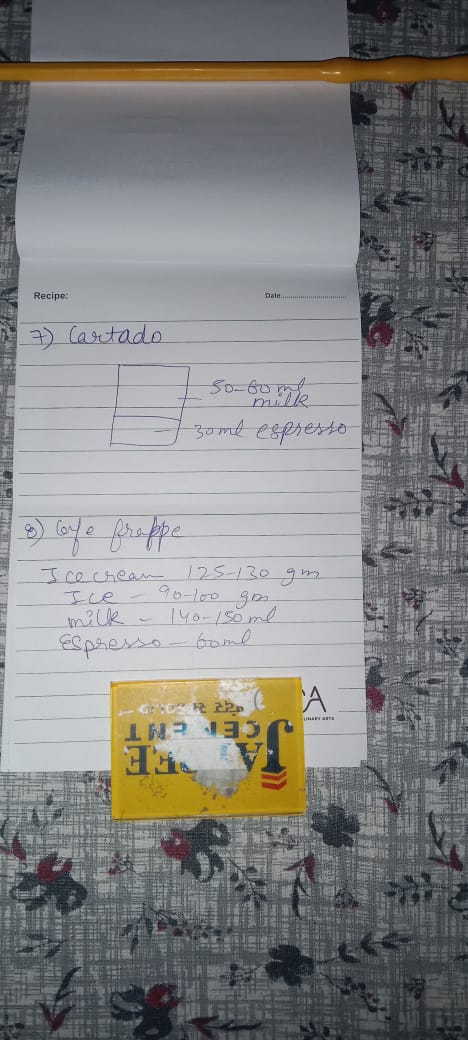 Recipe: Date
7) Cartado
50-60 ml
milk
30ml espresso
8) Cafe frappe
Icecream 125-130 gm
Ice - 90-100 gm
milk - 140-150 ml
Espresso - 60ml
CA
LINARY ARTS
JAYPEE
CEMENT